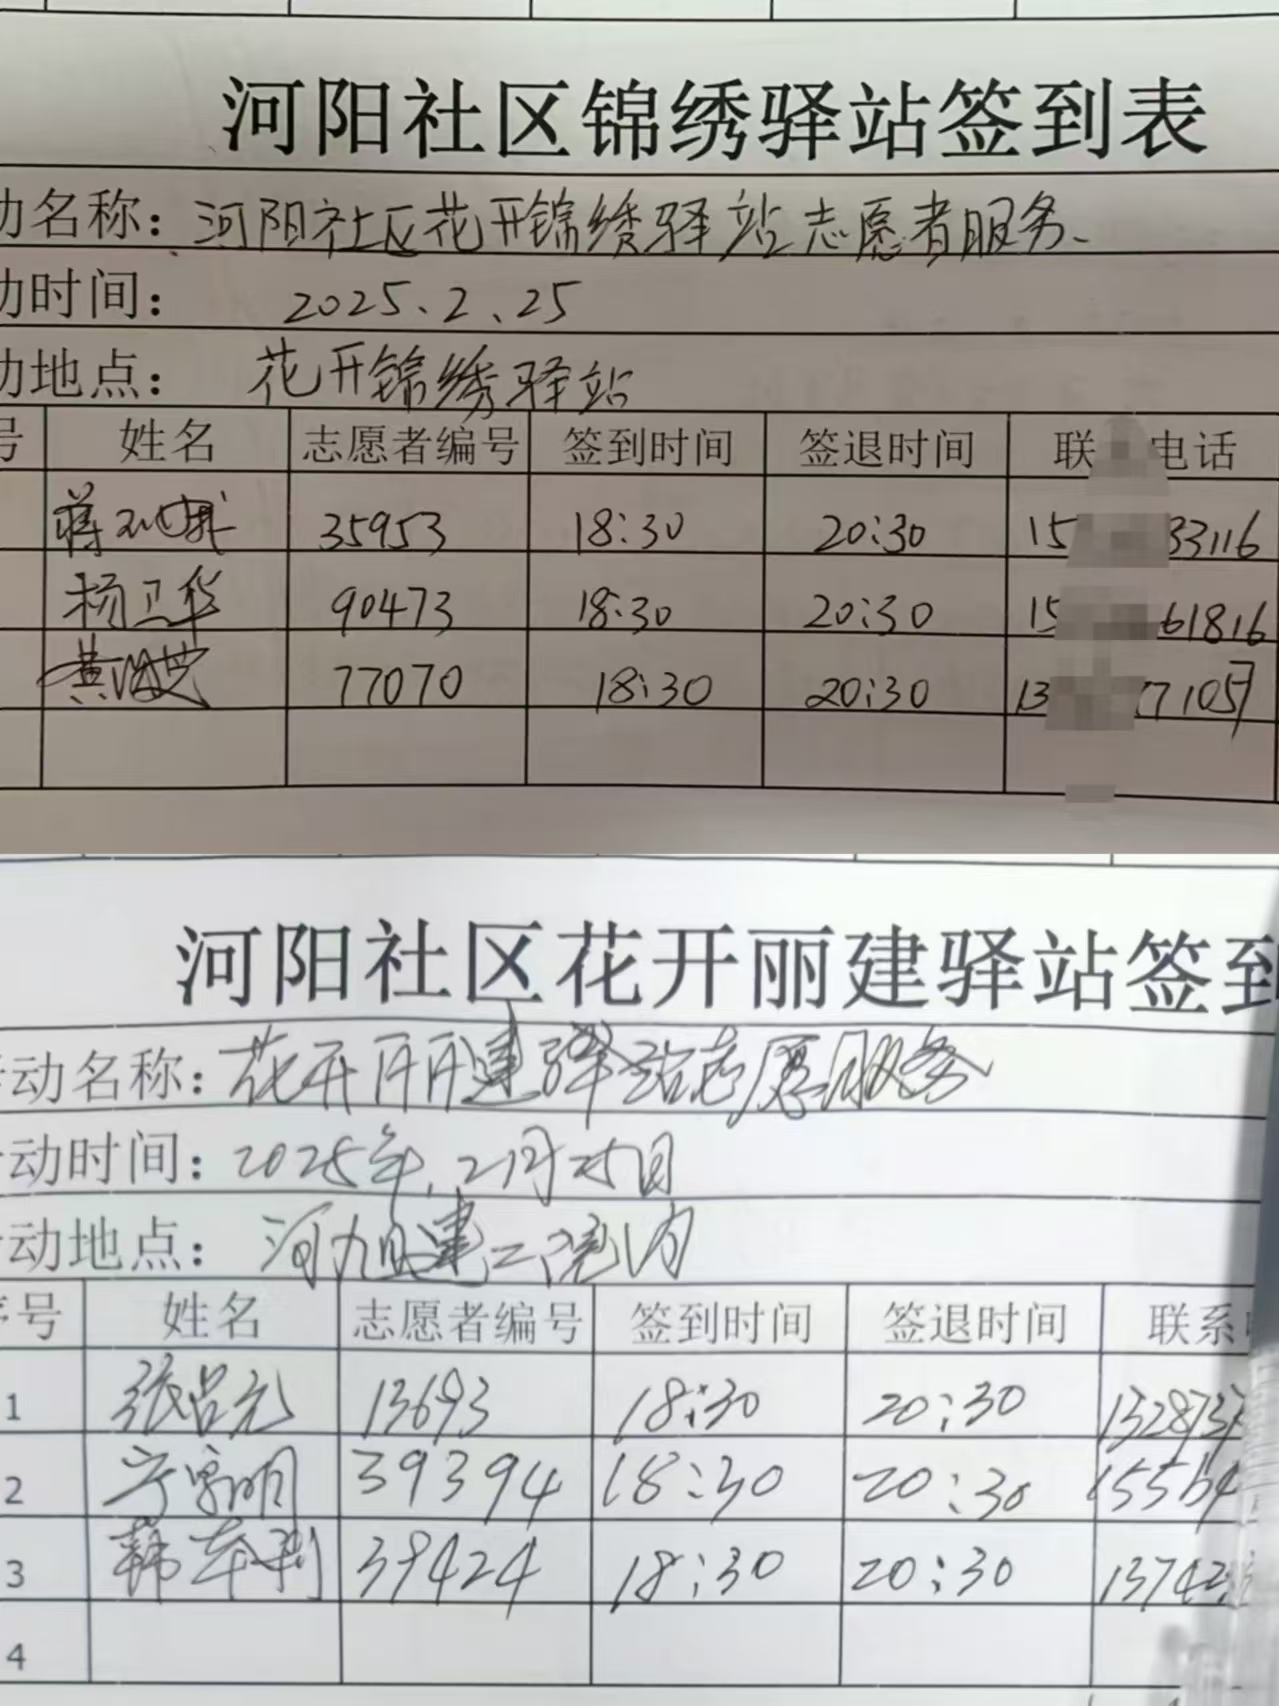 河阳社区锦绣驿站签到表
动名称：河阳社区花开锦绣驿站志愿者服务、
动时间： 2025、2、25
动地点： 花开锦绣驿站
号 姓名 志愿者编号 签到时间 签退时间 联 电话
蒋 35953 18:30 20:30 15 33116
杨卫华 90473 18:30 20:30 15 61816
黄 77070 18:30 20:30 13 77105
河阳社区花开丽建驿站签到
动名称：花开丽建驿站志愿服务
动时间：2025年、2月25日
动地点： 河阳建二院内
序号 姓名 志愿者编号 签到时间 签退时间 联系
1 张吕元 13693 18:30 20:30 132873
2 宁 明 39394 18:30 20:30 15564
3 韩 利 39424 18:30 20:30 13742
4